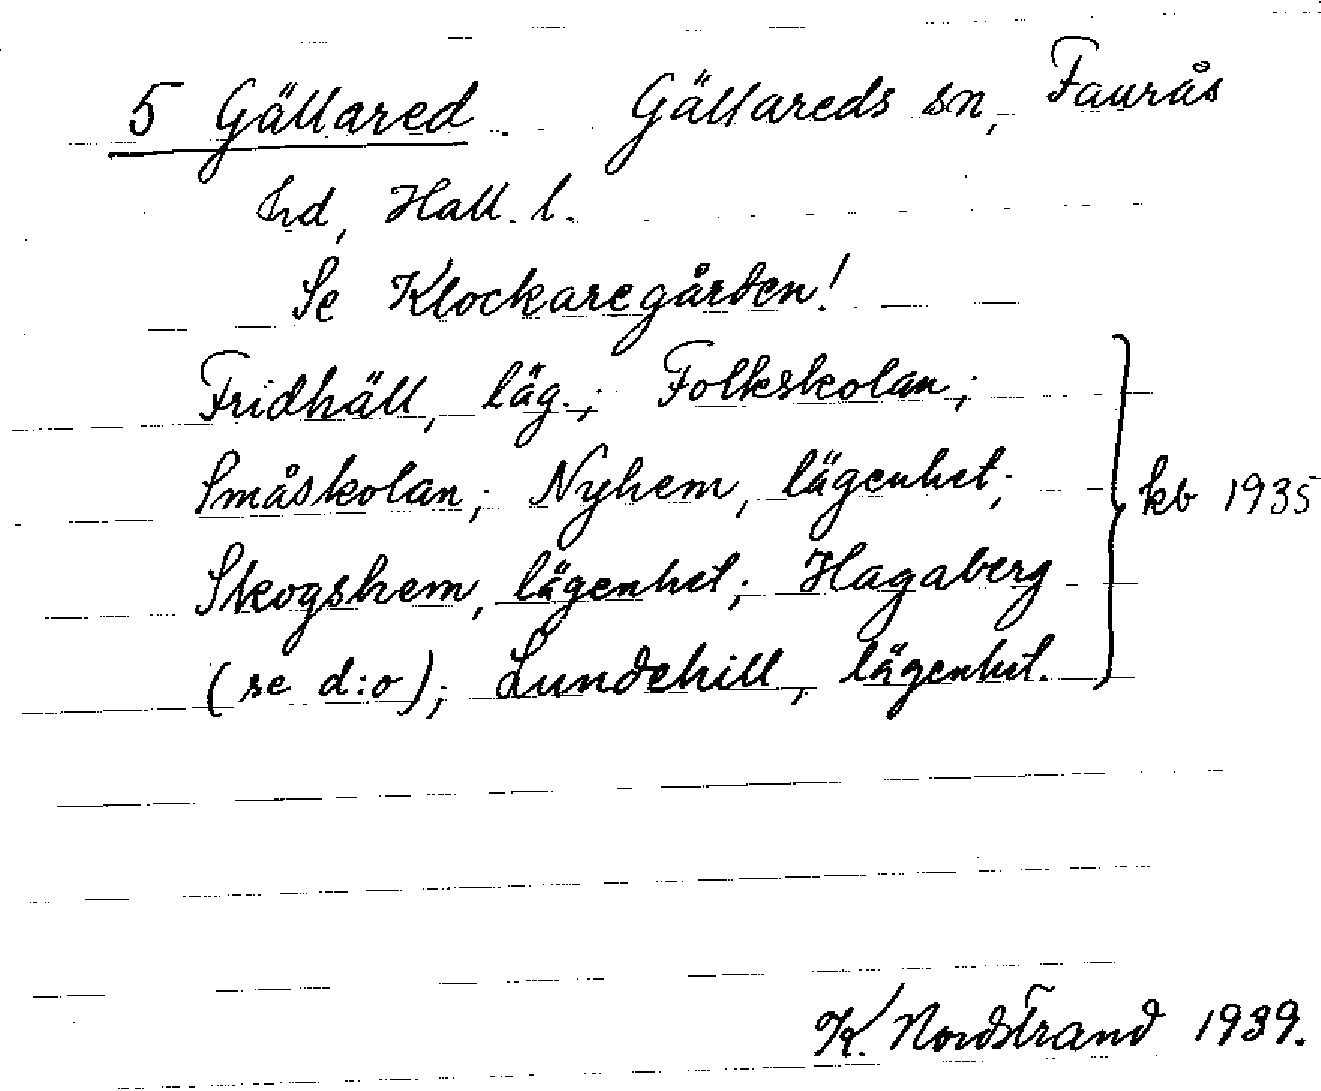 5 Gällared. Gällareds sn, Faurås
hd, Hall. l.
Se Klockaregården!
Fridhäll, läg.; Folkskolan;
Småskolan; Nyhem, lägenhet;
Skogshem, lägenhet; Hagaberg
(se d:o); Lundehill, lägenhet.
kb 1935
K. Nordstrand 1939.